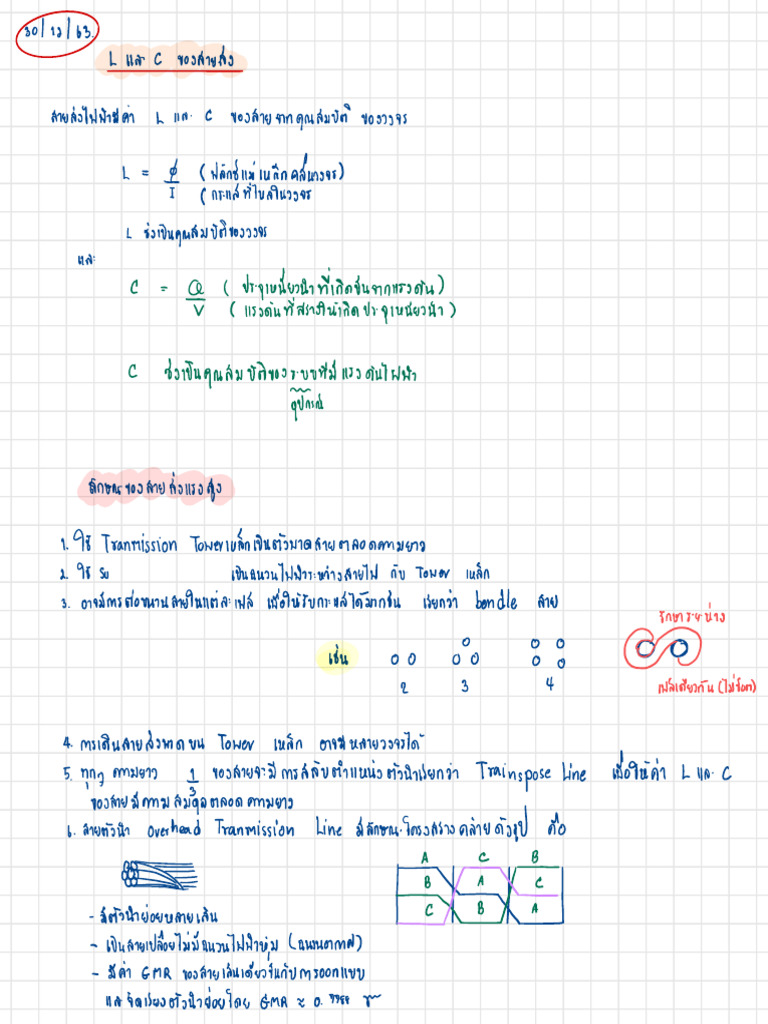 30/12/63.
L และ C ของสายส่ง
สายส่งไฟฟ้ามีค่า L และ C ของสายจากคุณสมบัติ ของวงจร
L = φ/I (ฟลักซ์แม่เหล็กคล้องวงจร)
(กระแสที่ไหลในวงจร
L ซึ่งเป็นคุณสมบัติของวงจร
และ
C = Q/V ( ประจุเหนี่ยวนำที่เกิดขึ้นจากแรงดัน )
( แรงดันที่สร้างให้เกิดประจุเหนี่ยวนำ )
C ซึ่งเป็นคุณสมบัติของระบบที่มีแรงดันไฟฟ้า
อุปกรณ์
ลักษณะของสายส่งแรงสูง
1. ใช้ Tranmission Tower เหล็กเป็นตัวพาดสายตลอดความยาว
2. ใช้ เป็นฉนวนไฟฟ้าระหว่างสายไฟ กับ Tower เหล็ก
3. อาจมีการต่อขนานสายในแต่ละเฟส เพื่อให้รับกระแสได้มากขึ้น เรียกว่า bondle สาย
รักษาระยะห่าง
เช่น
2 3 4
เฟสเดียวกัน (ไม่ช็อต)
4. การเดินสายส่งพาดบน Tower เหล็ก อาจมีหลายวงจรได้
5. ทุกๆ ความยาว 1/3 ของสายจะมีการสลับตำแหน่งตัวนำเรียกว่า Trainspose Line เพื่อให้ค่า L และ C
ของสายมีความสมดุลตลอดความยาว
6. สายตัวนำ overhead Tranmission Line มีลักษณะโครงสร้างคล้ายดังรูป คือ
A C B
B A C
C B A
- มีตัวนำย่อยหลายเส้น
- เป็นสายเปลือยไม่มีฉนวนไฟฟ้าหุ้ม (ฉนวนอากาศ)
- มีค่า GMR ของสายเส้นเดียวขึ้นกับการออกแบบ
และจัดเรียงตัวนำย่อยโดย GMR ≈ 0.7788 r